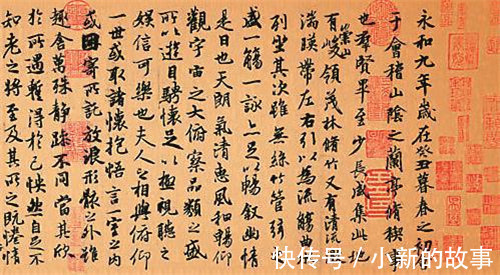 永和九年歲在癸丑暮春之初
于會稽山陰之蘭亭脩禊
也羣賢畢至少長咸集此
有崇山峻領茂林脩竹又有清
湍暎帶左右引以為流觴曲
列坐其次雖無絲竹管弦
盛一觴一詠亦足以暢敘幽情
是日也天朗氣清惠風和暢仰
觀宇宙之大俯察品類之盛
所以遊目騁懷足以極視聽之
娛信可樂也夫人之相與俯仰
一世或取諸懷抱悟言一室之內
或因寄所託放浪形骸之外雖
趣舍萬殊靜躁不同當其欣
於所遇暫得於己怏然自足不
知老之將至及其所之既惓情
快传号/小新的故事